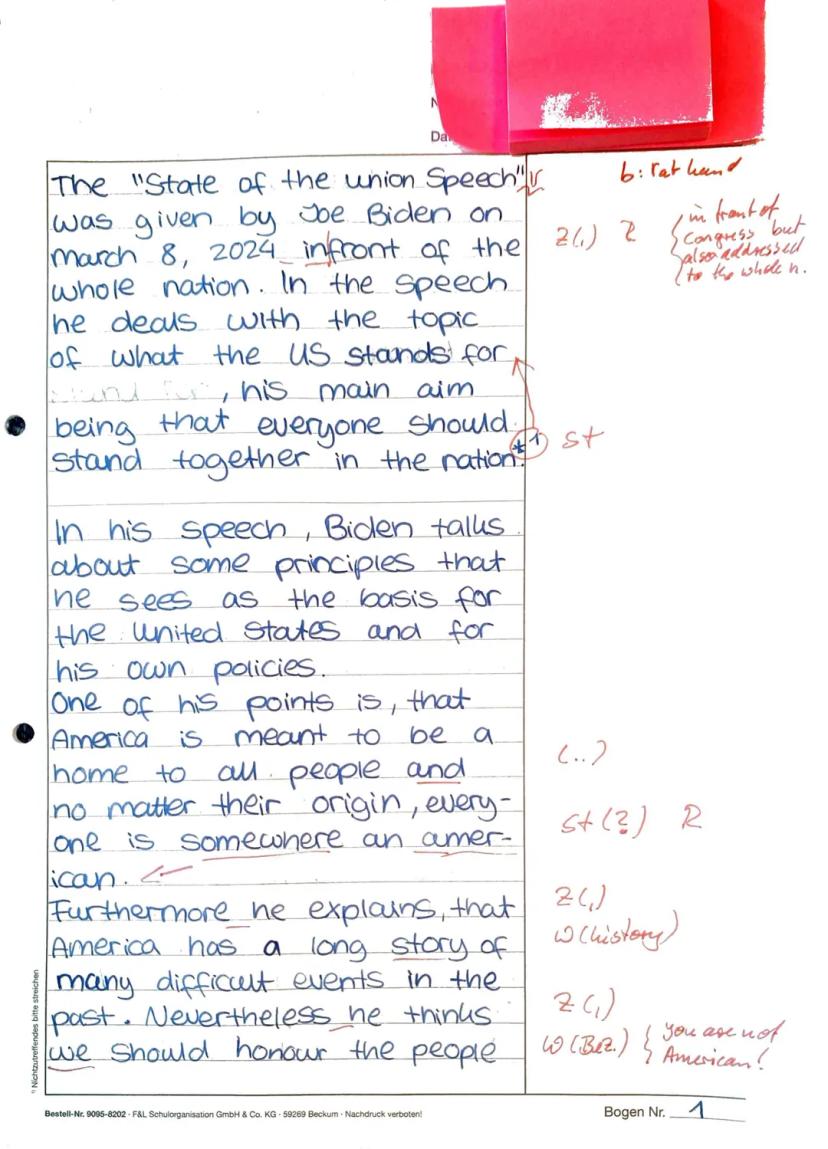 Da
The "State of the union Speech" b: rat hand
was given by Joe Biden on
march 8, 2024 infront of the
Z(,) R
{ in front of
Congress but
also addressed
to the whole n.
whole nation. In the speech
he deals with the topic
of what the US stands for
, his main aim
being that everyone should
stand together in the nation. *1 st
In his speech, Biden talks
about some principles that
he sees as the basis for
the united states and for
his own policies.
One of his points is, that
America is meant to be a
home to all people and (..)
no matter their origin, every-
one is somewhere an amer- st (?) R
ican.
Furthermore he explains, that Z(,)
America has a long story of W (history)
many difficult events in the
past. Nevertheless he thinks Z(,)
we should honour the people W (Bez.) { you are not
American!
¹⁾ Nichtzutreffendes bitte streichen
Bestell-Nr. 9095-8202 · F&L Schulorganisation GmbH & Co. KG · 59269 Beckum · Nachdruck verboten!
Bogen Nr. 1